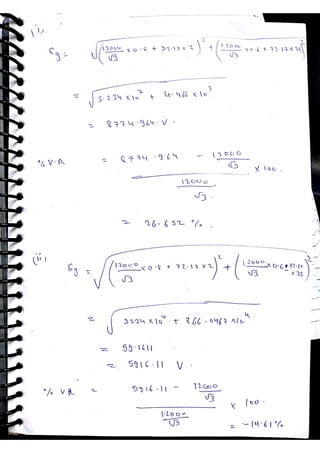 (i)
Eg = √(12000/√3 × 0.8 + 72.17 × 2)² + (12000/√3 × 0.6 + 72.17 × 25)²
= √5.234 × 10⁷ + 4.466 × 10⁷
= 8774.964 V.
% V.R = 8774.964 - 12000/√3 / 12000/√3 × 100.
= 26.652 %.
(ii)
Eg = √(12000/√3 × 0.8 + 72.17 × 2)² + (12000/√3 × 0.6 - 72.17 × 25)²
= √3234 × 10⁴ + 266.0467 × 10⁴
= 59.1611
= 5916.11 V
% VR = 5916.11 - 12000/√3 / 12000/√3 × 100.
= -14.61%